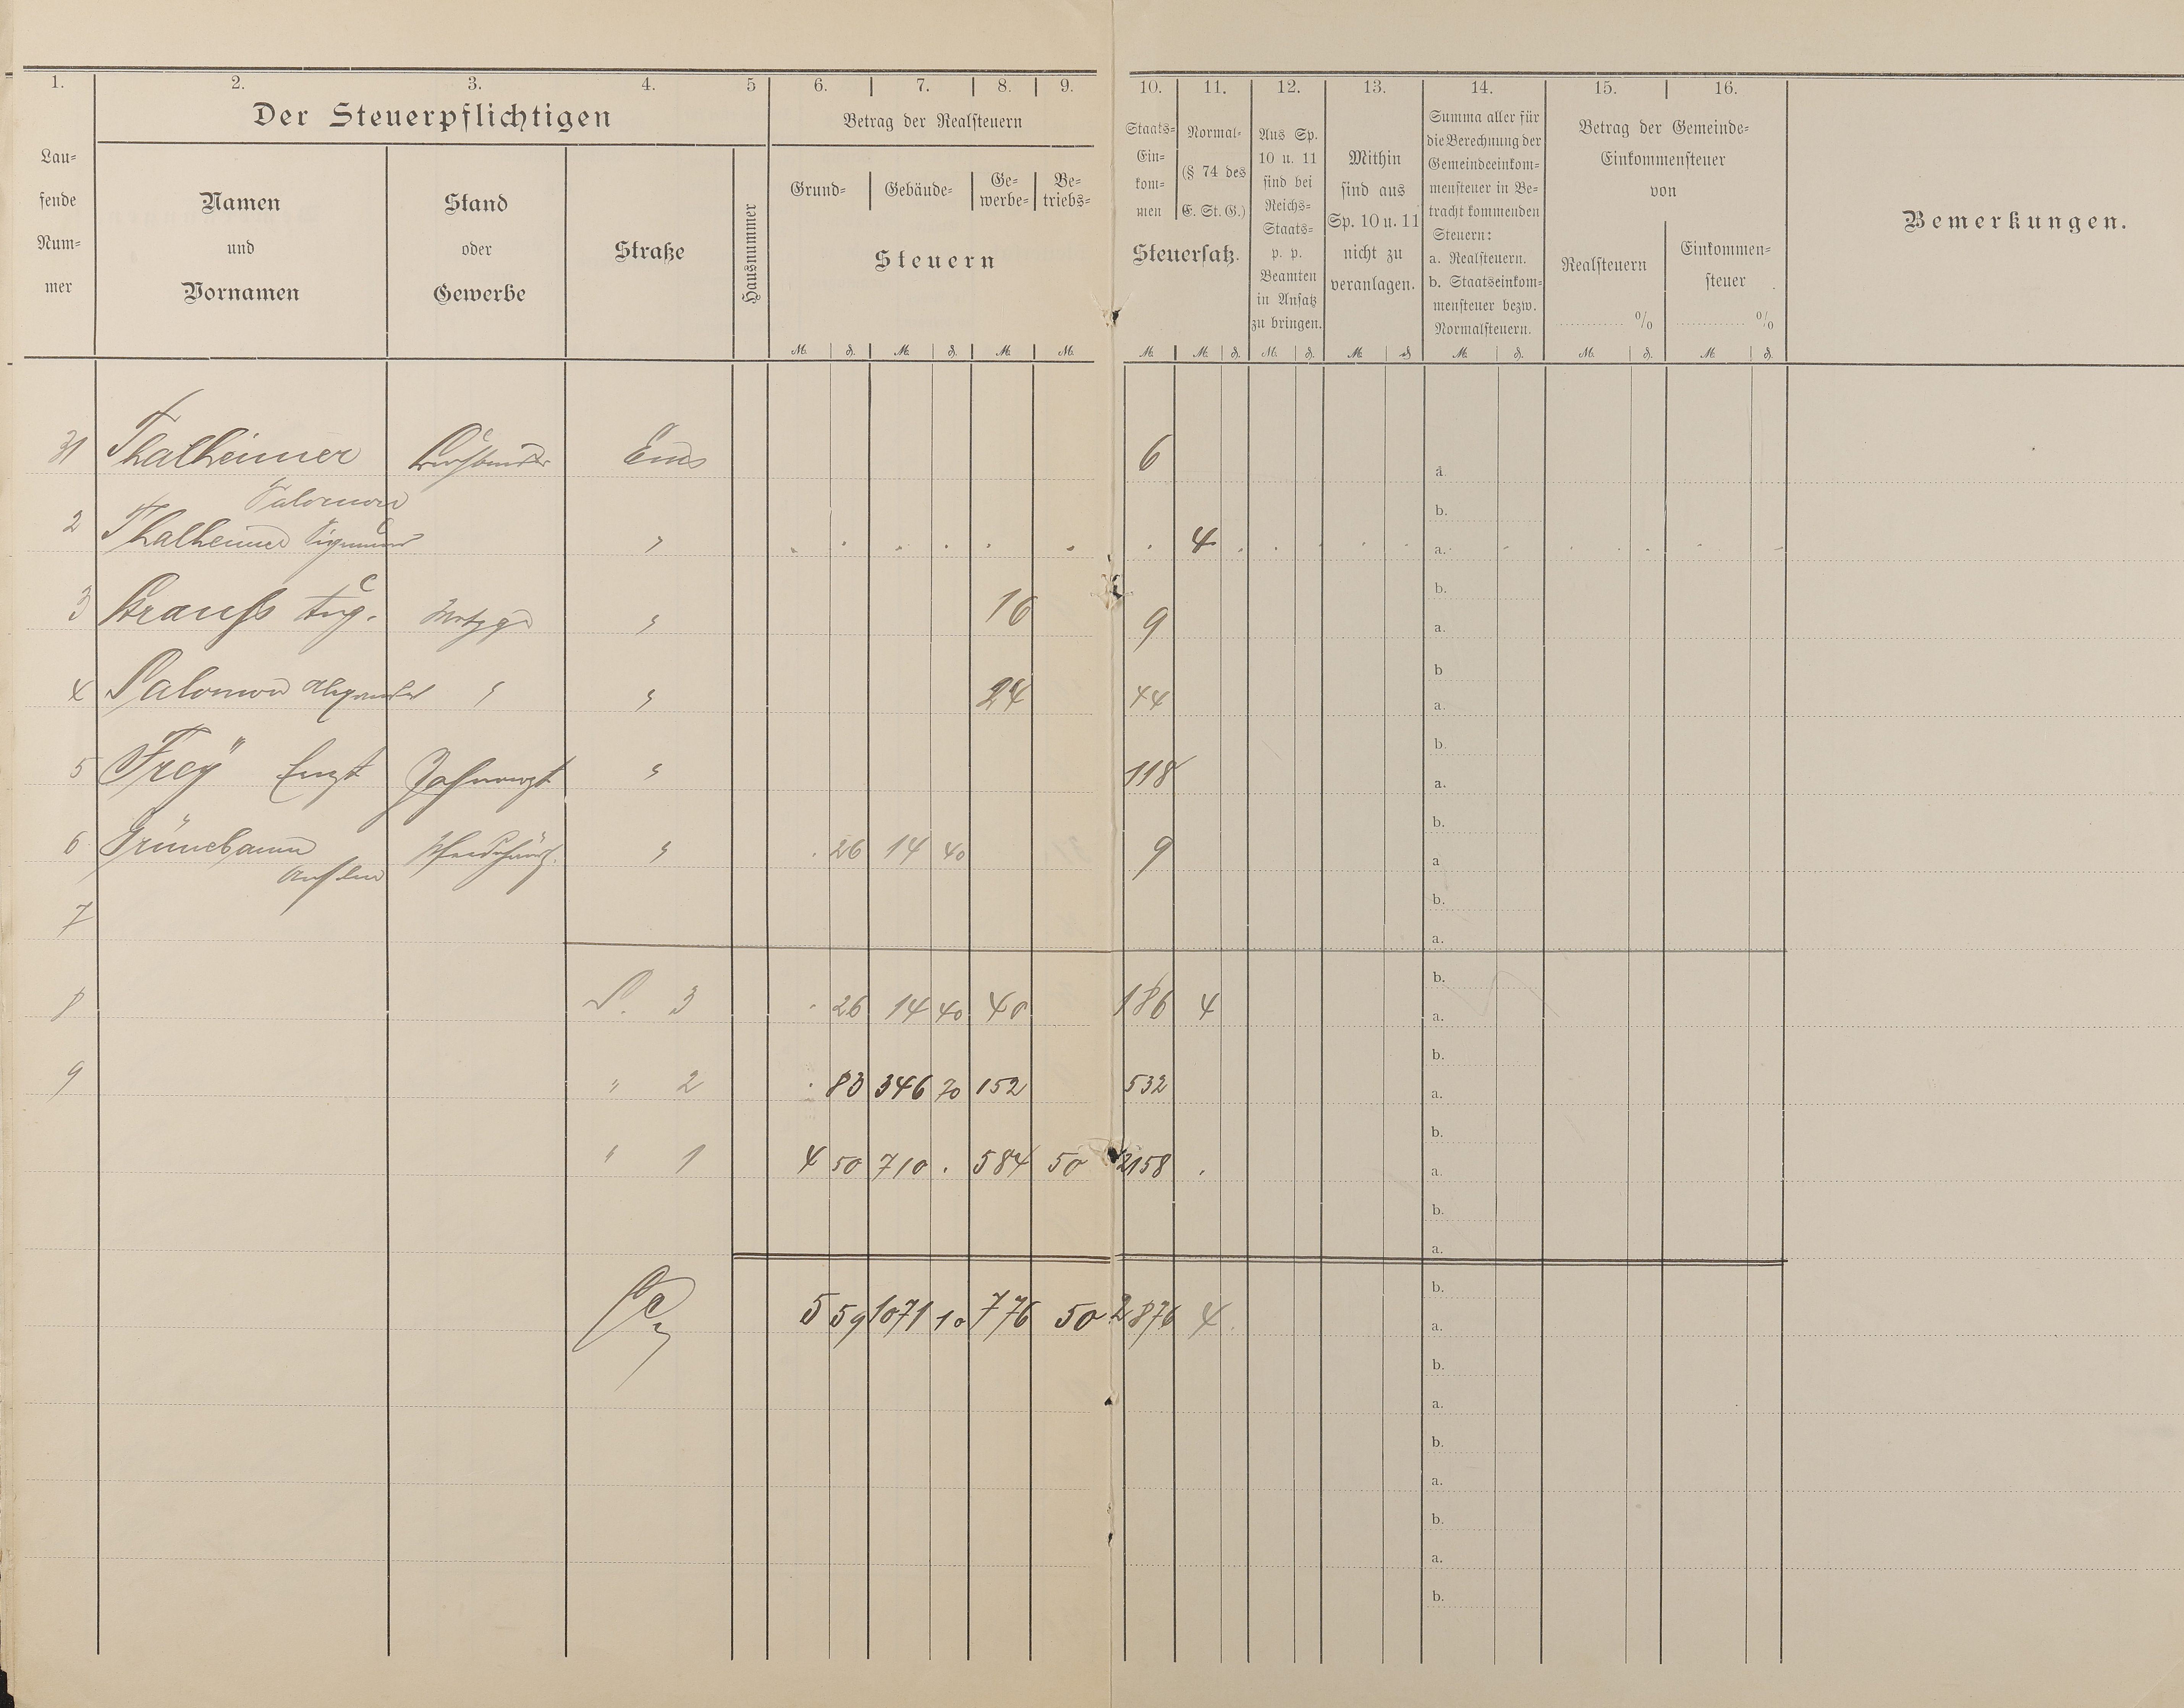 1. 2. 3. 4. 5 6. 7. 8. 9. 10. 11. 12. 13. 14. 15. 16.
Der Steuerpflichtigen
Lau-
fende
Num-
mer
Namen
und
Vornamen
Stand
oder
Gewerbe
Straße
Hausnummer
Betrag der Realsteuern
Grund- Gebäude- Ge-
werbe- Be-
triebs-
Steuern
Staats-
Ein-
kom-
men
Normal-
(§ 74 des
E. St. G.)
Steuersatz.
Aus Sp.
10 u. 11
sind bei
Reichs-
Staats-
p. p.
Beamten
in Ansatz
zu bringen.
Mithin
sind aus
Sp. 10 u. 11
nicht zu
veranlagen.
Summa aller für
die Berechnung der
Gemeindeeinkom-
mensteuer in Be-
tracht kommenden
Steuern:
a. Realsteuern.
b. Staatseinkom-
mensteuer bezw.
Normalsteuern.
Betrag der Gemeinde-
Einkommensteuer
von
Realsteuern
%
Einkommen-
steuer
%
Bemerkungen.
M. ₰. M. ₰. M. M. M. M. ₰. M. ₰. M. ₰ M. ₰. M. ₰. M. ₰.
31 Thalheimer Ems 6 a.
Salomon b.
2 Thalheimer Sigmund " 4 a.
b.
3 Strauss Aug. Metzger " 16 9 a.
b
4 Salomon Alexander " " 24 44 a.
b.
5 Frey Ernst Zahnarzt " 118 a.
b.
6 Grünebaum " . 26 14 40 9 a
b.
7 a.
b.
8 S. 3 . 26 14 40 40 186 4 a.
b.
9 " 2 . 83 346 70 152 532 a.
b.
" 1 4 50 710 . 584 50 2158 . a.
b.
a.
b.
5 59 1071 10 776 50 2876 4. a.
b.
a.
b.
a.
b.
a.
b.